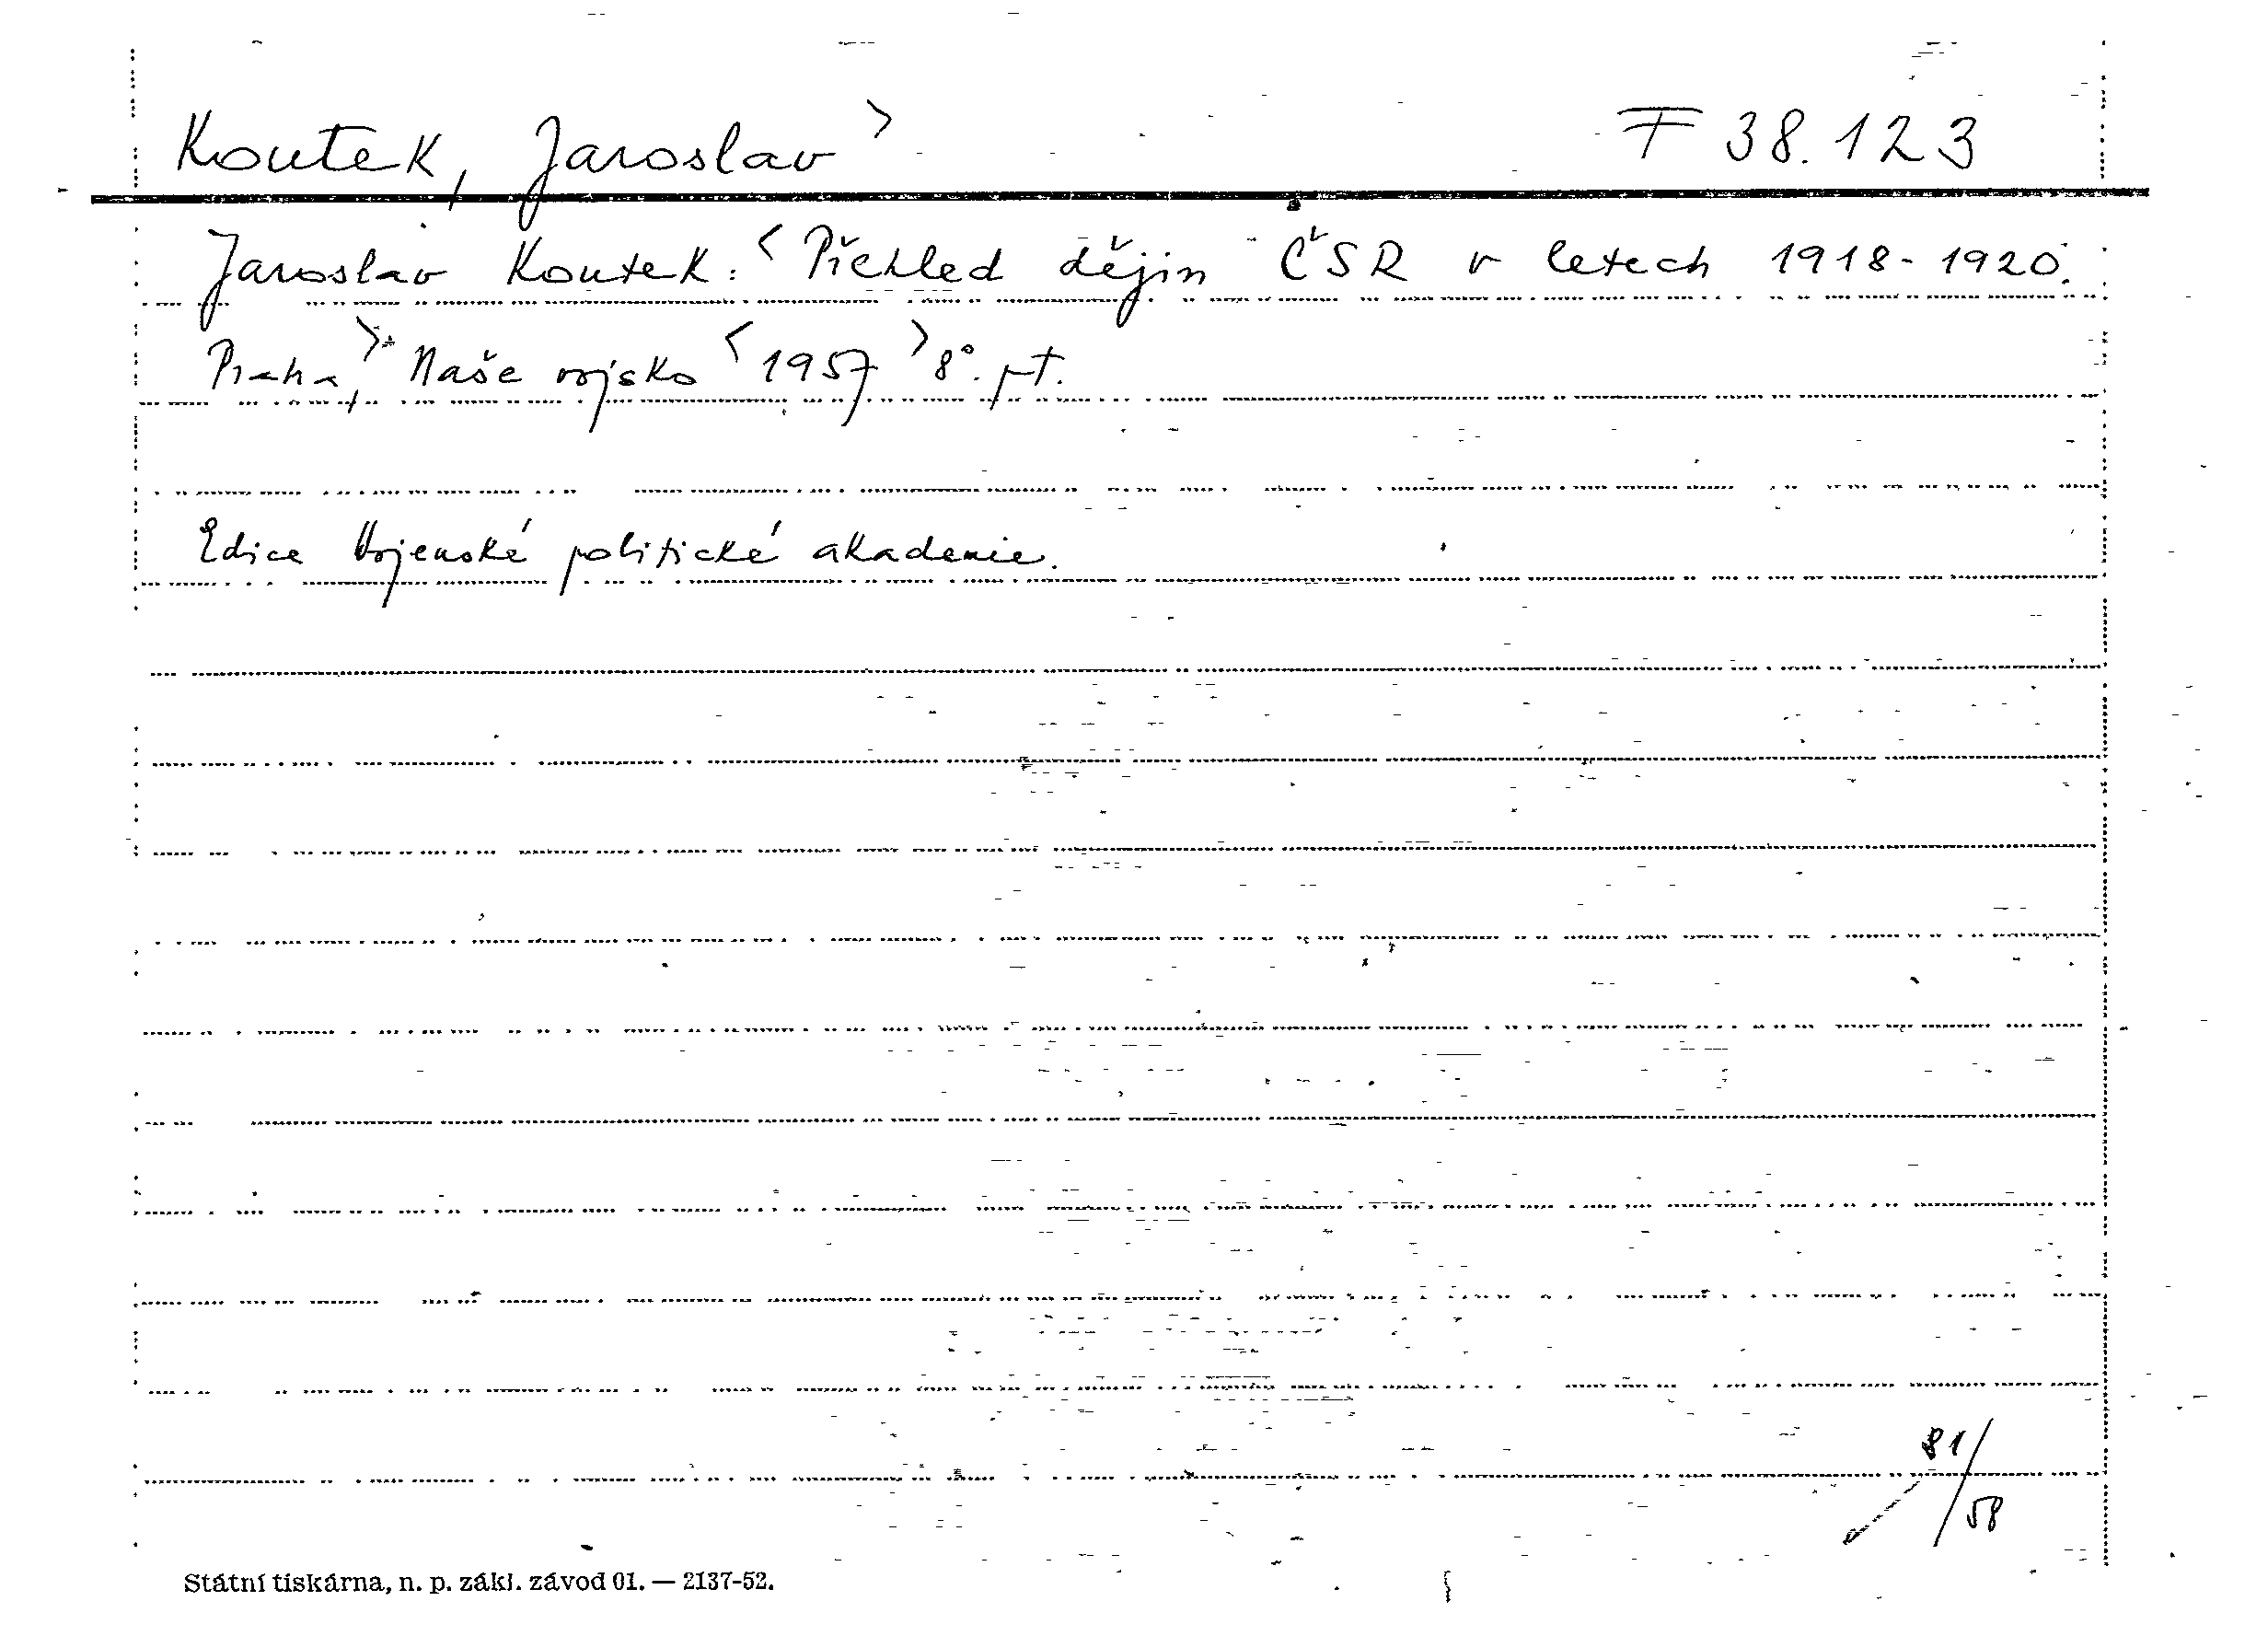 Koutek, Jaroslav > F 38.123
Jaroslav Koutek: < Přehled dějin ČSR v letech 1918-1920.
Praha, > Naše vojsko < 1957 > 8°. pt.
Edice Vojenské politické akademie.
81/58
Státní tiskárna, n. p. zákl. závod 01. — 2137-52.